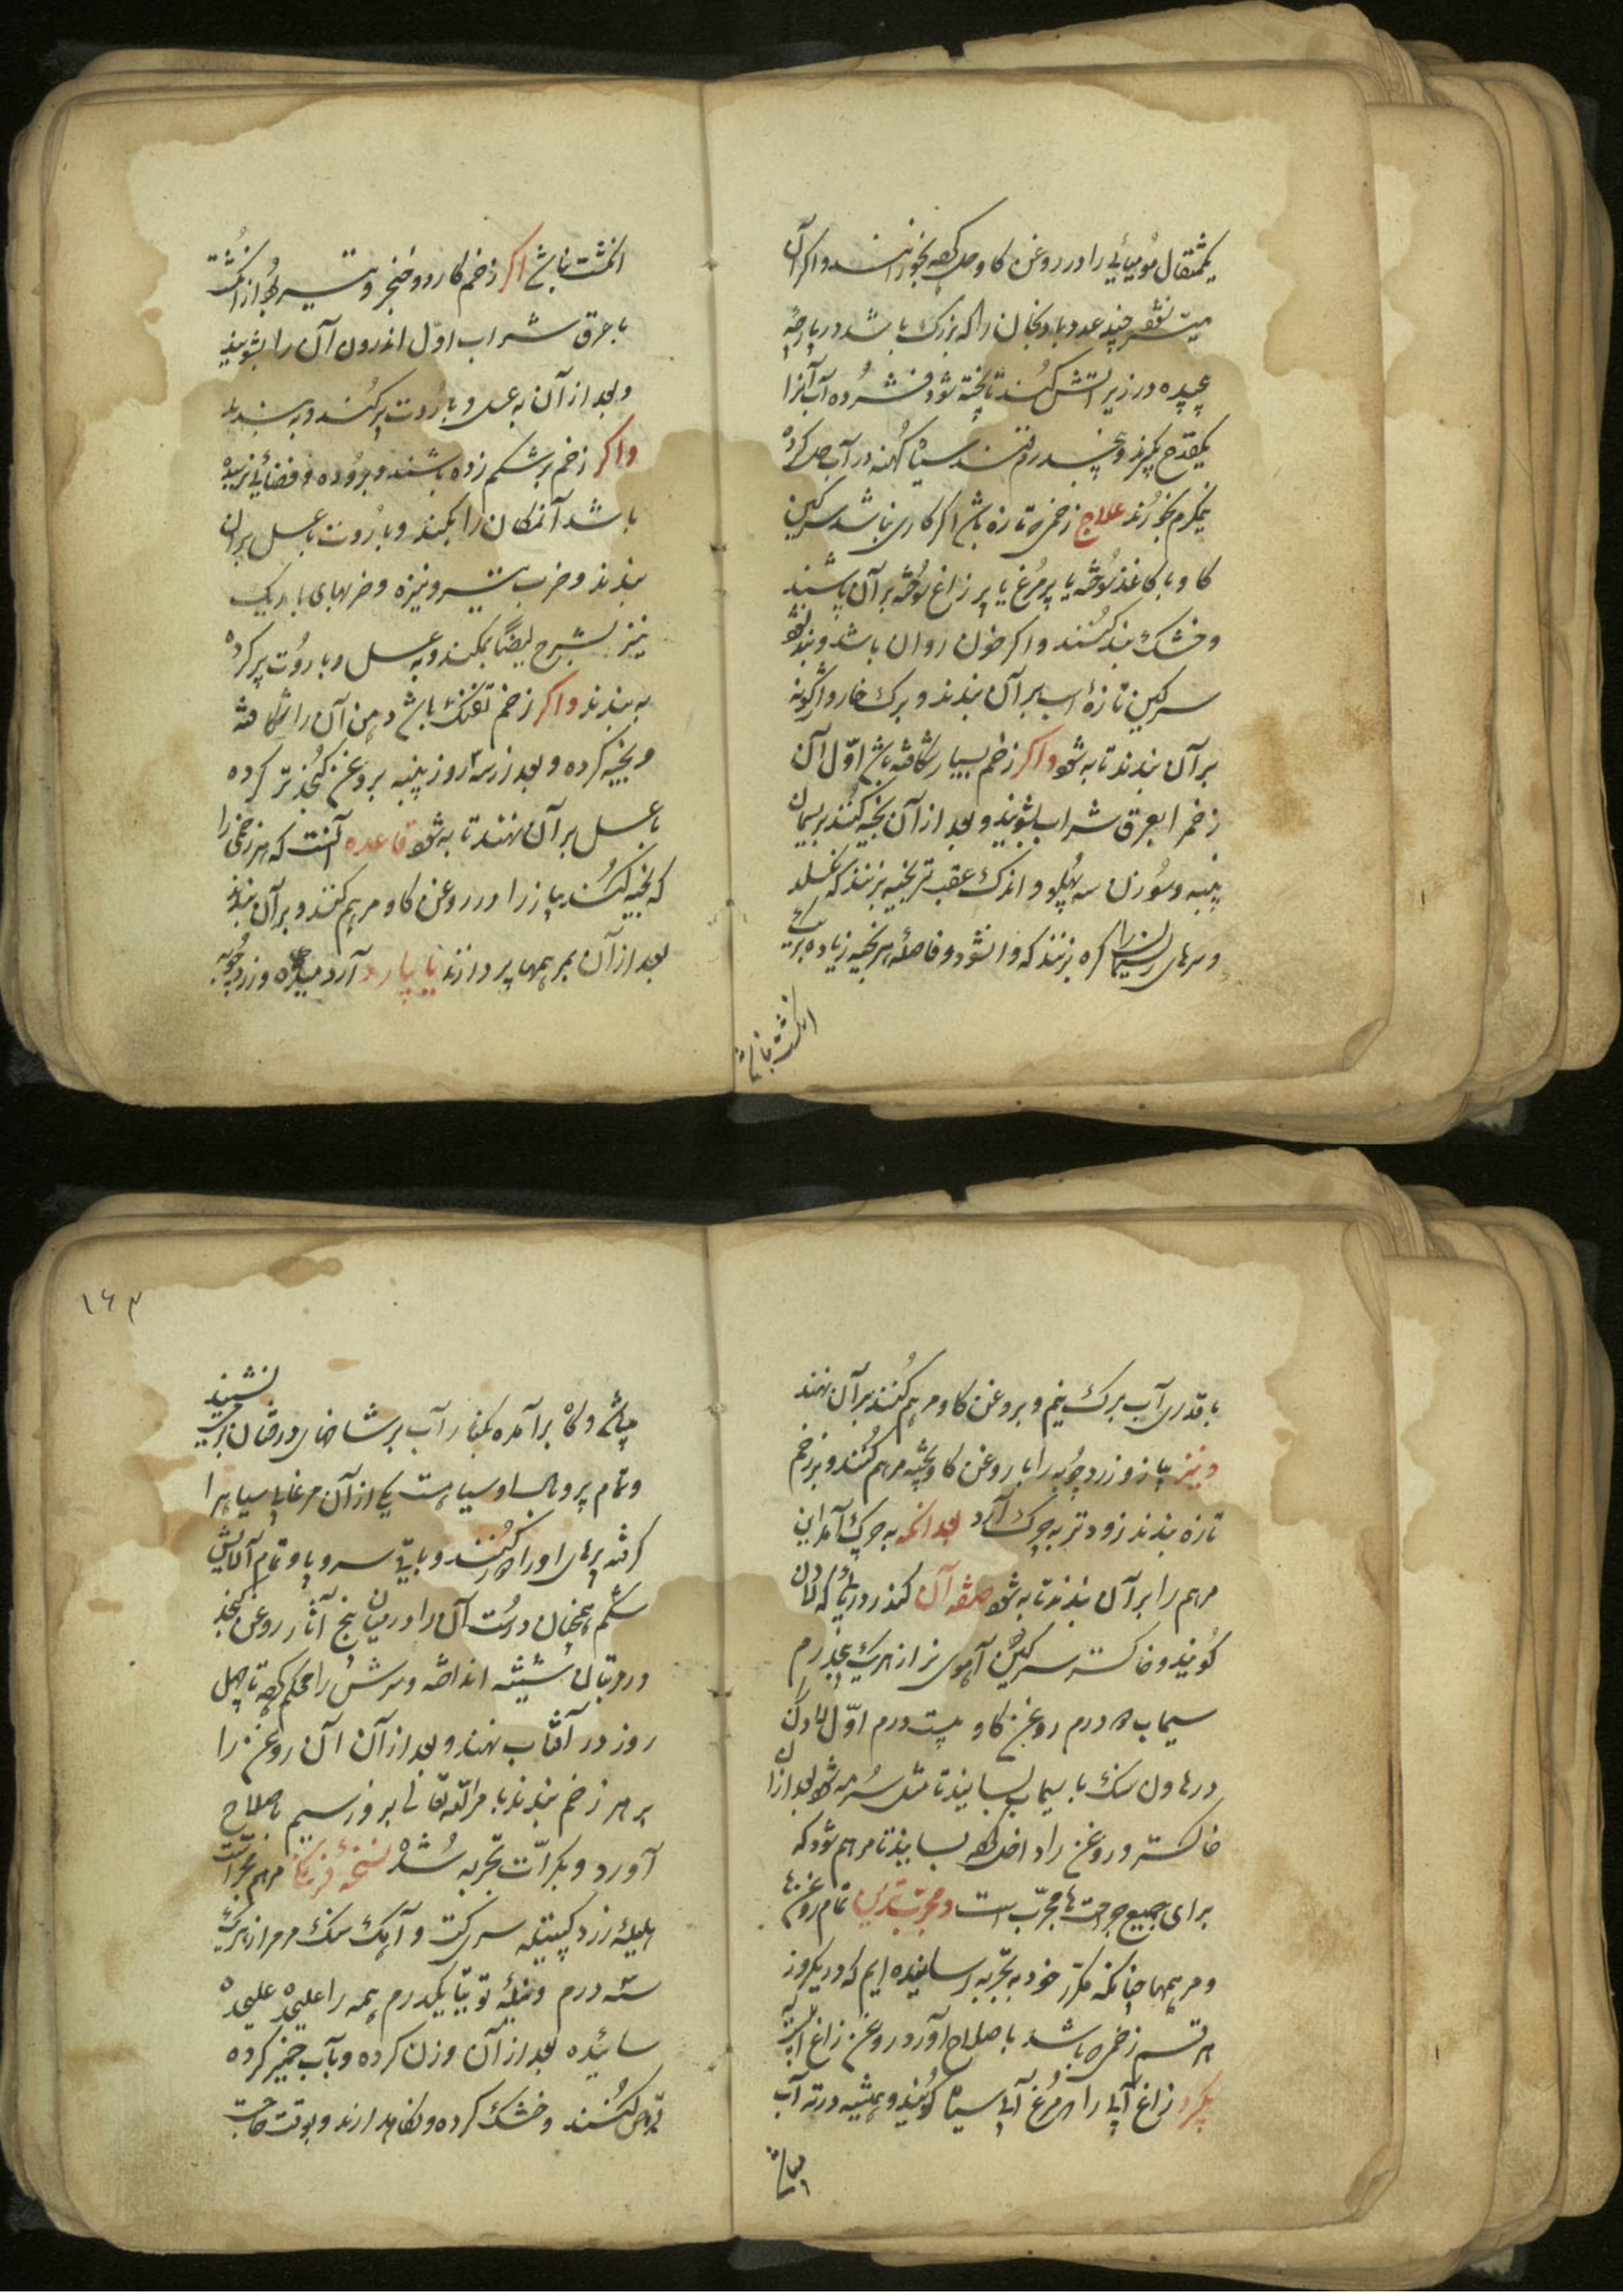 یکمثقال مومیائی را در روغن کاو حل کرده بخورانند و اکر آن
میسر نشود چند عدد بادنجان را که بزرک باشد در پارچه
پیچیده در زیر آتش کنند تا پخته شود و فشرده آب آنرا
یکقدح بکیرند و پنجدرم قند سیاه کهنه در آب حل کرده
نیمکرم بخورند علاج زخمی که تازه باشد اکر کاری نباشد سرکین
کاو با کاغذ سوخته یا پر مرغ یا پر زاغ سوخته بر آن پاشند
و خشک بند کنند و اکر خون روان باشد و بند نشود
سرکین تازهٔ اسب بر آن بندند و برک خار واژکونه
بر آن بندند تا به شود و اکر زخم بسیار شکافته باشد اوّل آن
زخم را بعرق شراب بشویند و بعد از آن بخیه کنند بریسمان
پنبه و سوزن سه پهلو و اندک عقب تر بخیه بزنند که نکسلد
و سرهای ریسمان را کره بزنند که وا نشود و فاصلهٔ هر بخیه زیاده بر یک
انکشت نباشد
انکشت نباشد اکر زخم کارد و خنجر و تیر بود از انکشت
با عرق شراب اوّل اندرون آن را بشویند
و بعد از آن به عسل و باروت پر کنند و به بندند
واکر زخم بر شکم زده باشند و بروده و فضائی نرسیده
باشد آنمکان را بمکند و باروت با عسل بر آن
بندند و ضرب تیر و نیزه و ضربهای باریک
نیز بشرح ایضا بمکند و به عسل و باروت پر کرده
به بندند واکر زخم تفنک باشد دهن آن را شکافته
و بخیه کرده و بعد از سه روز پنبه بروغن کنجد تر کرده
با عسل بر آن نهند تا به شود قاعده آنست که هر زخمی را
که بخیه کنند پیاز را در روغن کاو مرهم کنند و بر آن بندند
بعد از آن بمرهمها پردازند یا بیارد آرد میده و زردچوبه
با قدری آب برک نیم و بروغن کاو مرهم کنند بر آن نهند
و نیز پیاز و زردچوبه را با روغن کاو پخته مرهم کنند و بر زخم
تازه بندند زودتر به چرک آرد بعد آنکه به چرک آمد این
مرهم را بر آن بندند تا به شود صفه آن کندر دریائی که لادن
کویند و خاکستر سرکین آهوی نر از هر یک پنجدرم
سیماب ده درم روغن کاو بیست درم اوّل لادن
در هاون سنک با سیماب بسایند تا مثل سرمه شود بعد از آن
خاکستر و روغن را داخل کرده بسایند تا مرهم شود که
برای جمیع جراحتها مجرّب است و مجرب ترین تمام روغنها
و مرهمها چنانکه مکرّر خود به تجربه رسانیده ایم که در یکروز
هر قسم زخمی که باشد باصلاح آورد روغن زاغ آبیست
بکیرد زاغ آبی را که مرغ آبی سیاه کویند و همیشه در ته آب
میباشد
میباشد و کاه برآمده بکنار آب بر شاخهای درختان نشیند
و تمام پر و بال او سیاهست یکی از آن مرغابی سیاه را
کرفته پرهای او را دور کنند و باقی سر و پا و تمام آلایش
شکم همچنان درست آن را در میان پنج آثار روغن کنجد
در مرتبان شیشه انداخته و سرش را محکم کرده تا چهل
روز در آفتاب نهند و بعد از آن آن روغن را
بر هر زخم بندند بامر اللّه تعالی بروز سیم باصلاح
آورد و بکرّات تجربه شده نسخهٔ فرنکی مرهم جراحت
هلیلهٔ زرد کپیله سرکت و آهک سنک مرمر از هر یک
سه درم و نیله توتیا یکدرم همه را علیحده علیحده
سائیده بعد از آن وزن کرده و بآب خمیز کرده
قرص کنند و خشک کرده و نکاهدارند و بوقت حاجت
۱۶۳